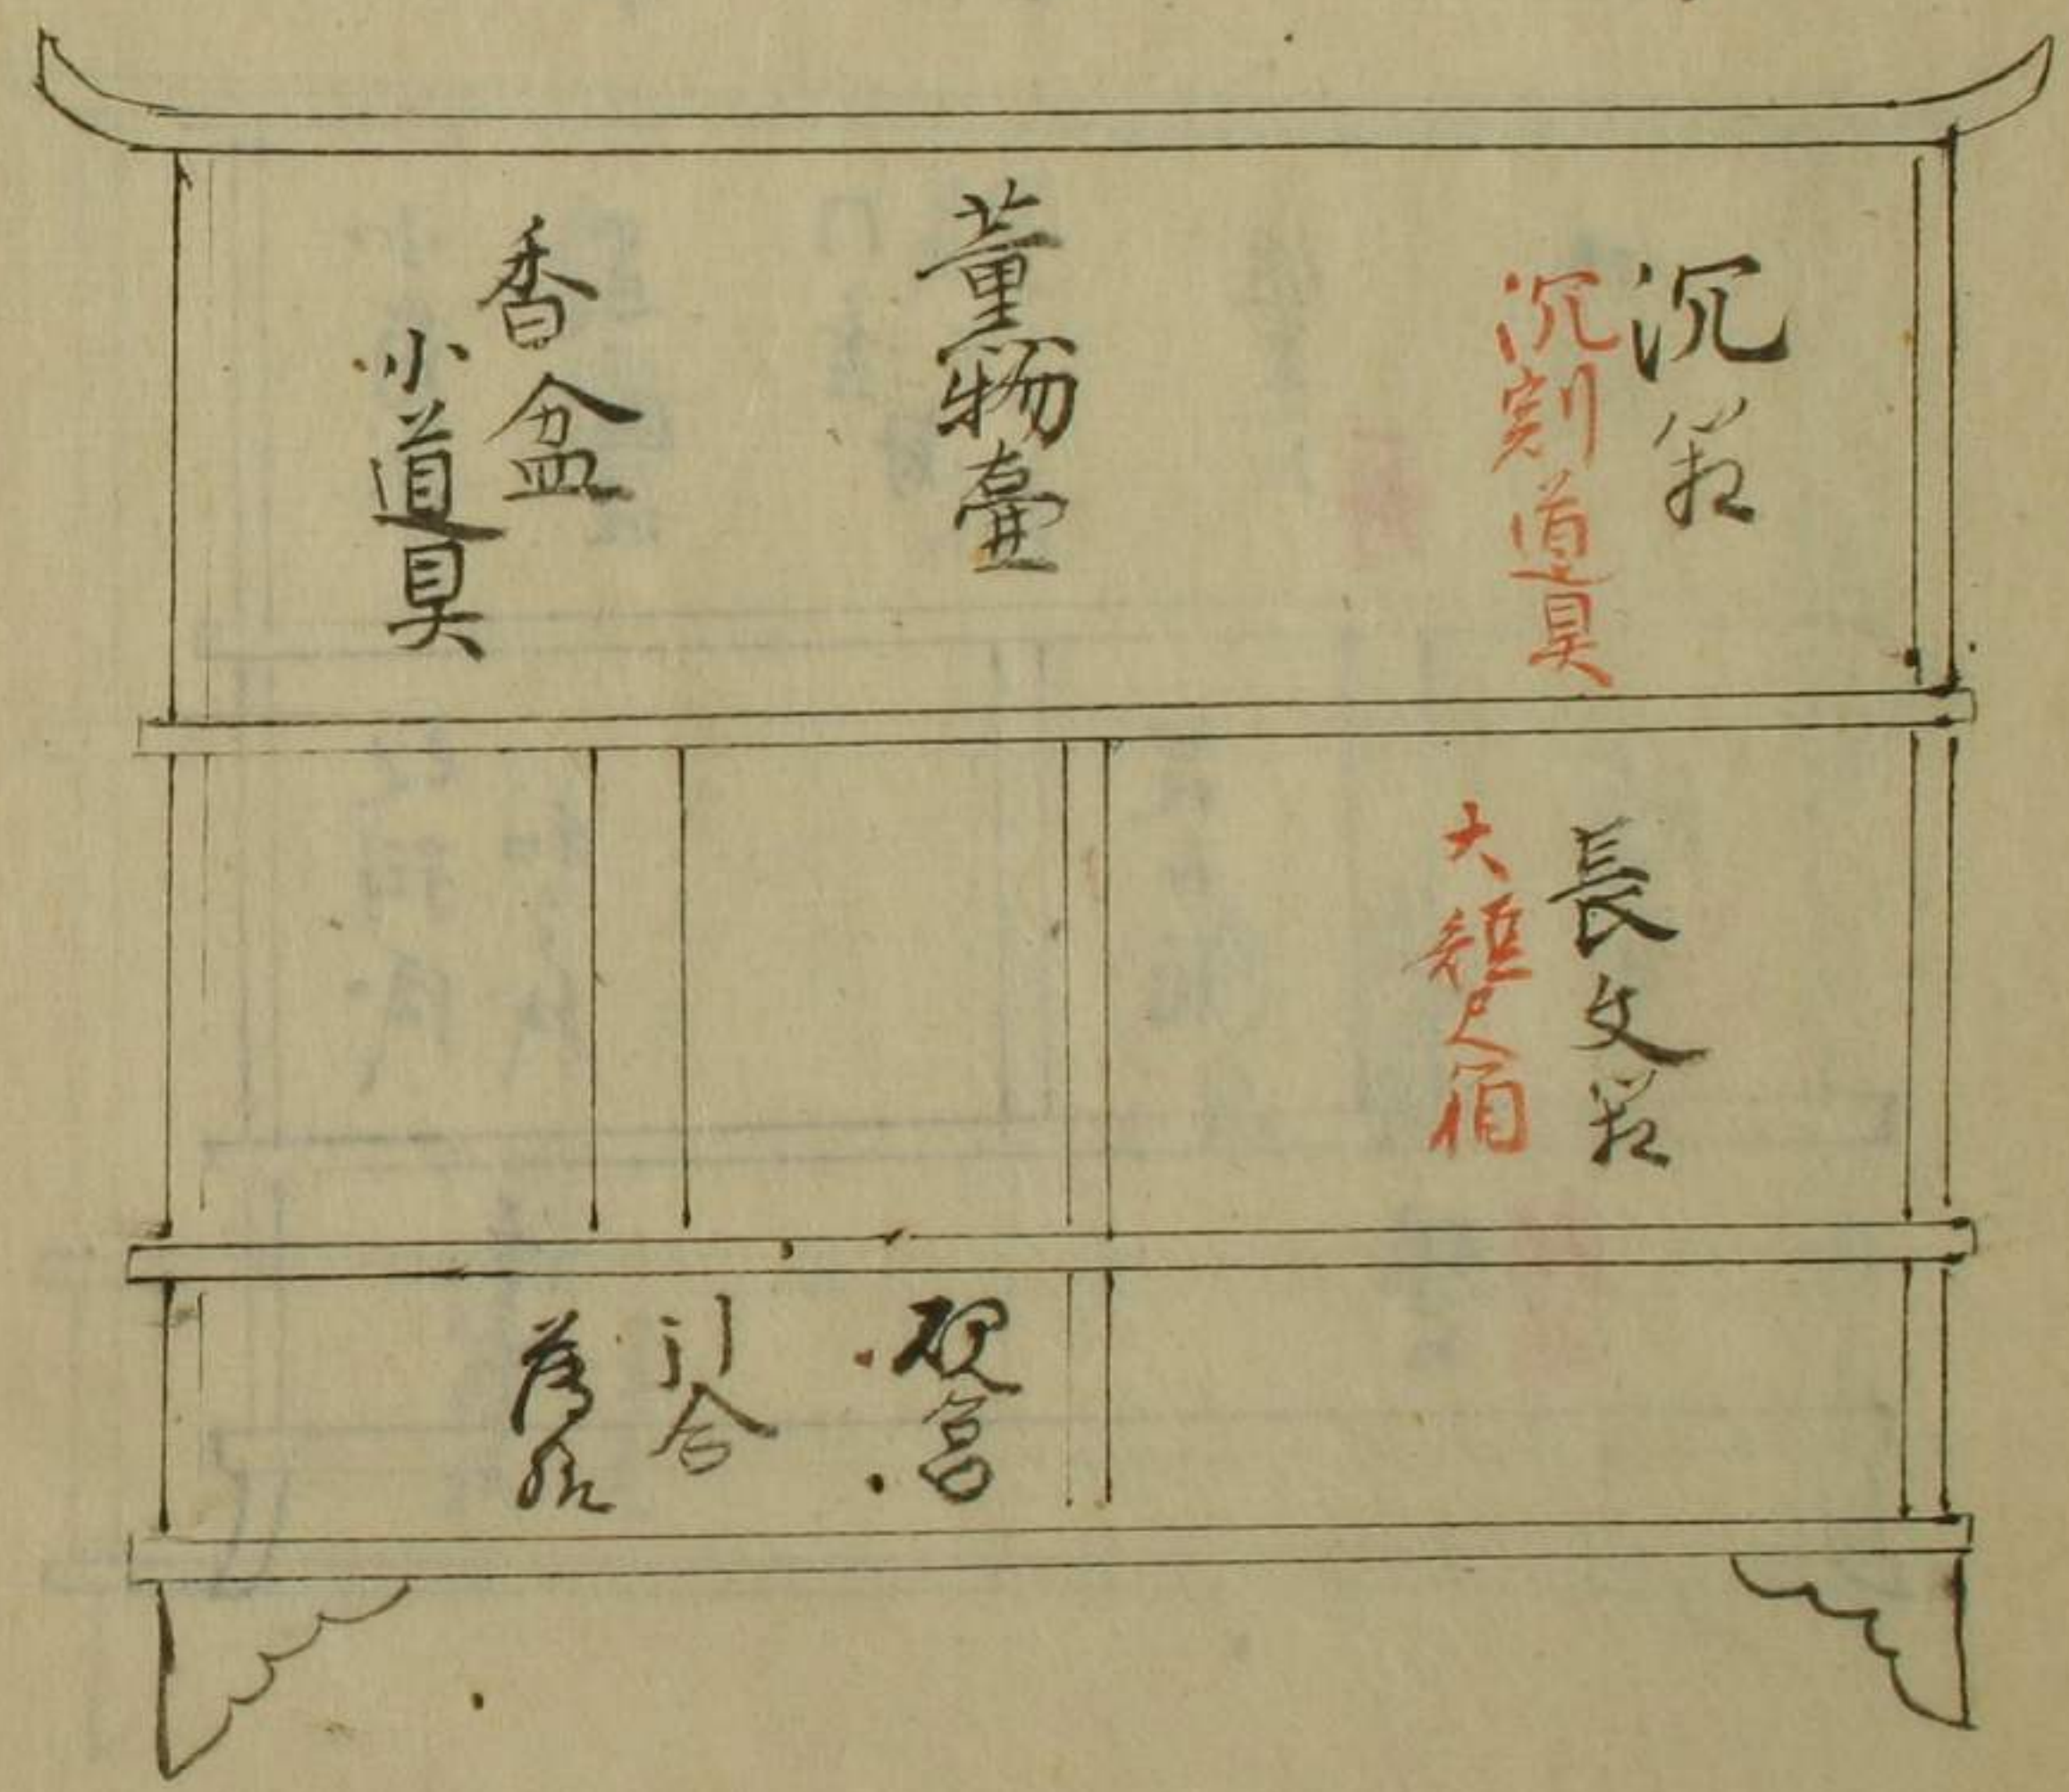 沉箱
沉割道具
薫物臺
香盆
小道具
長文箱
大短尺箱
硯箱
引合
薄様